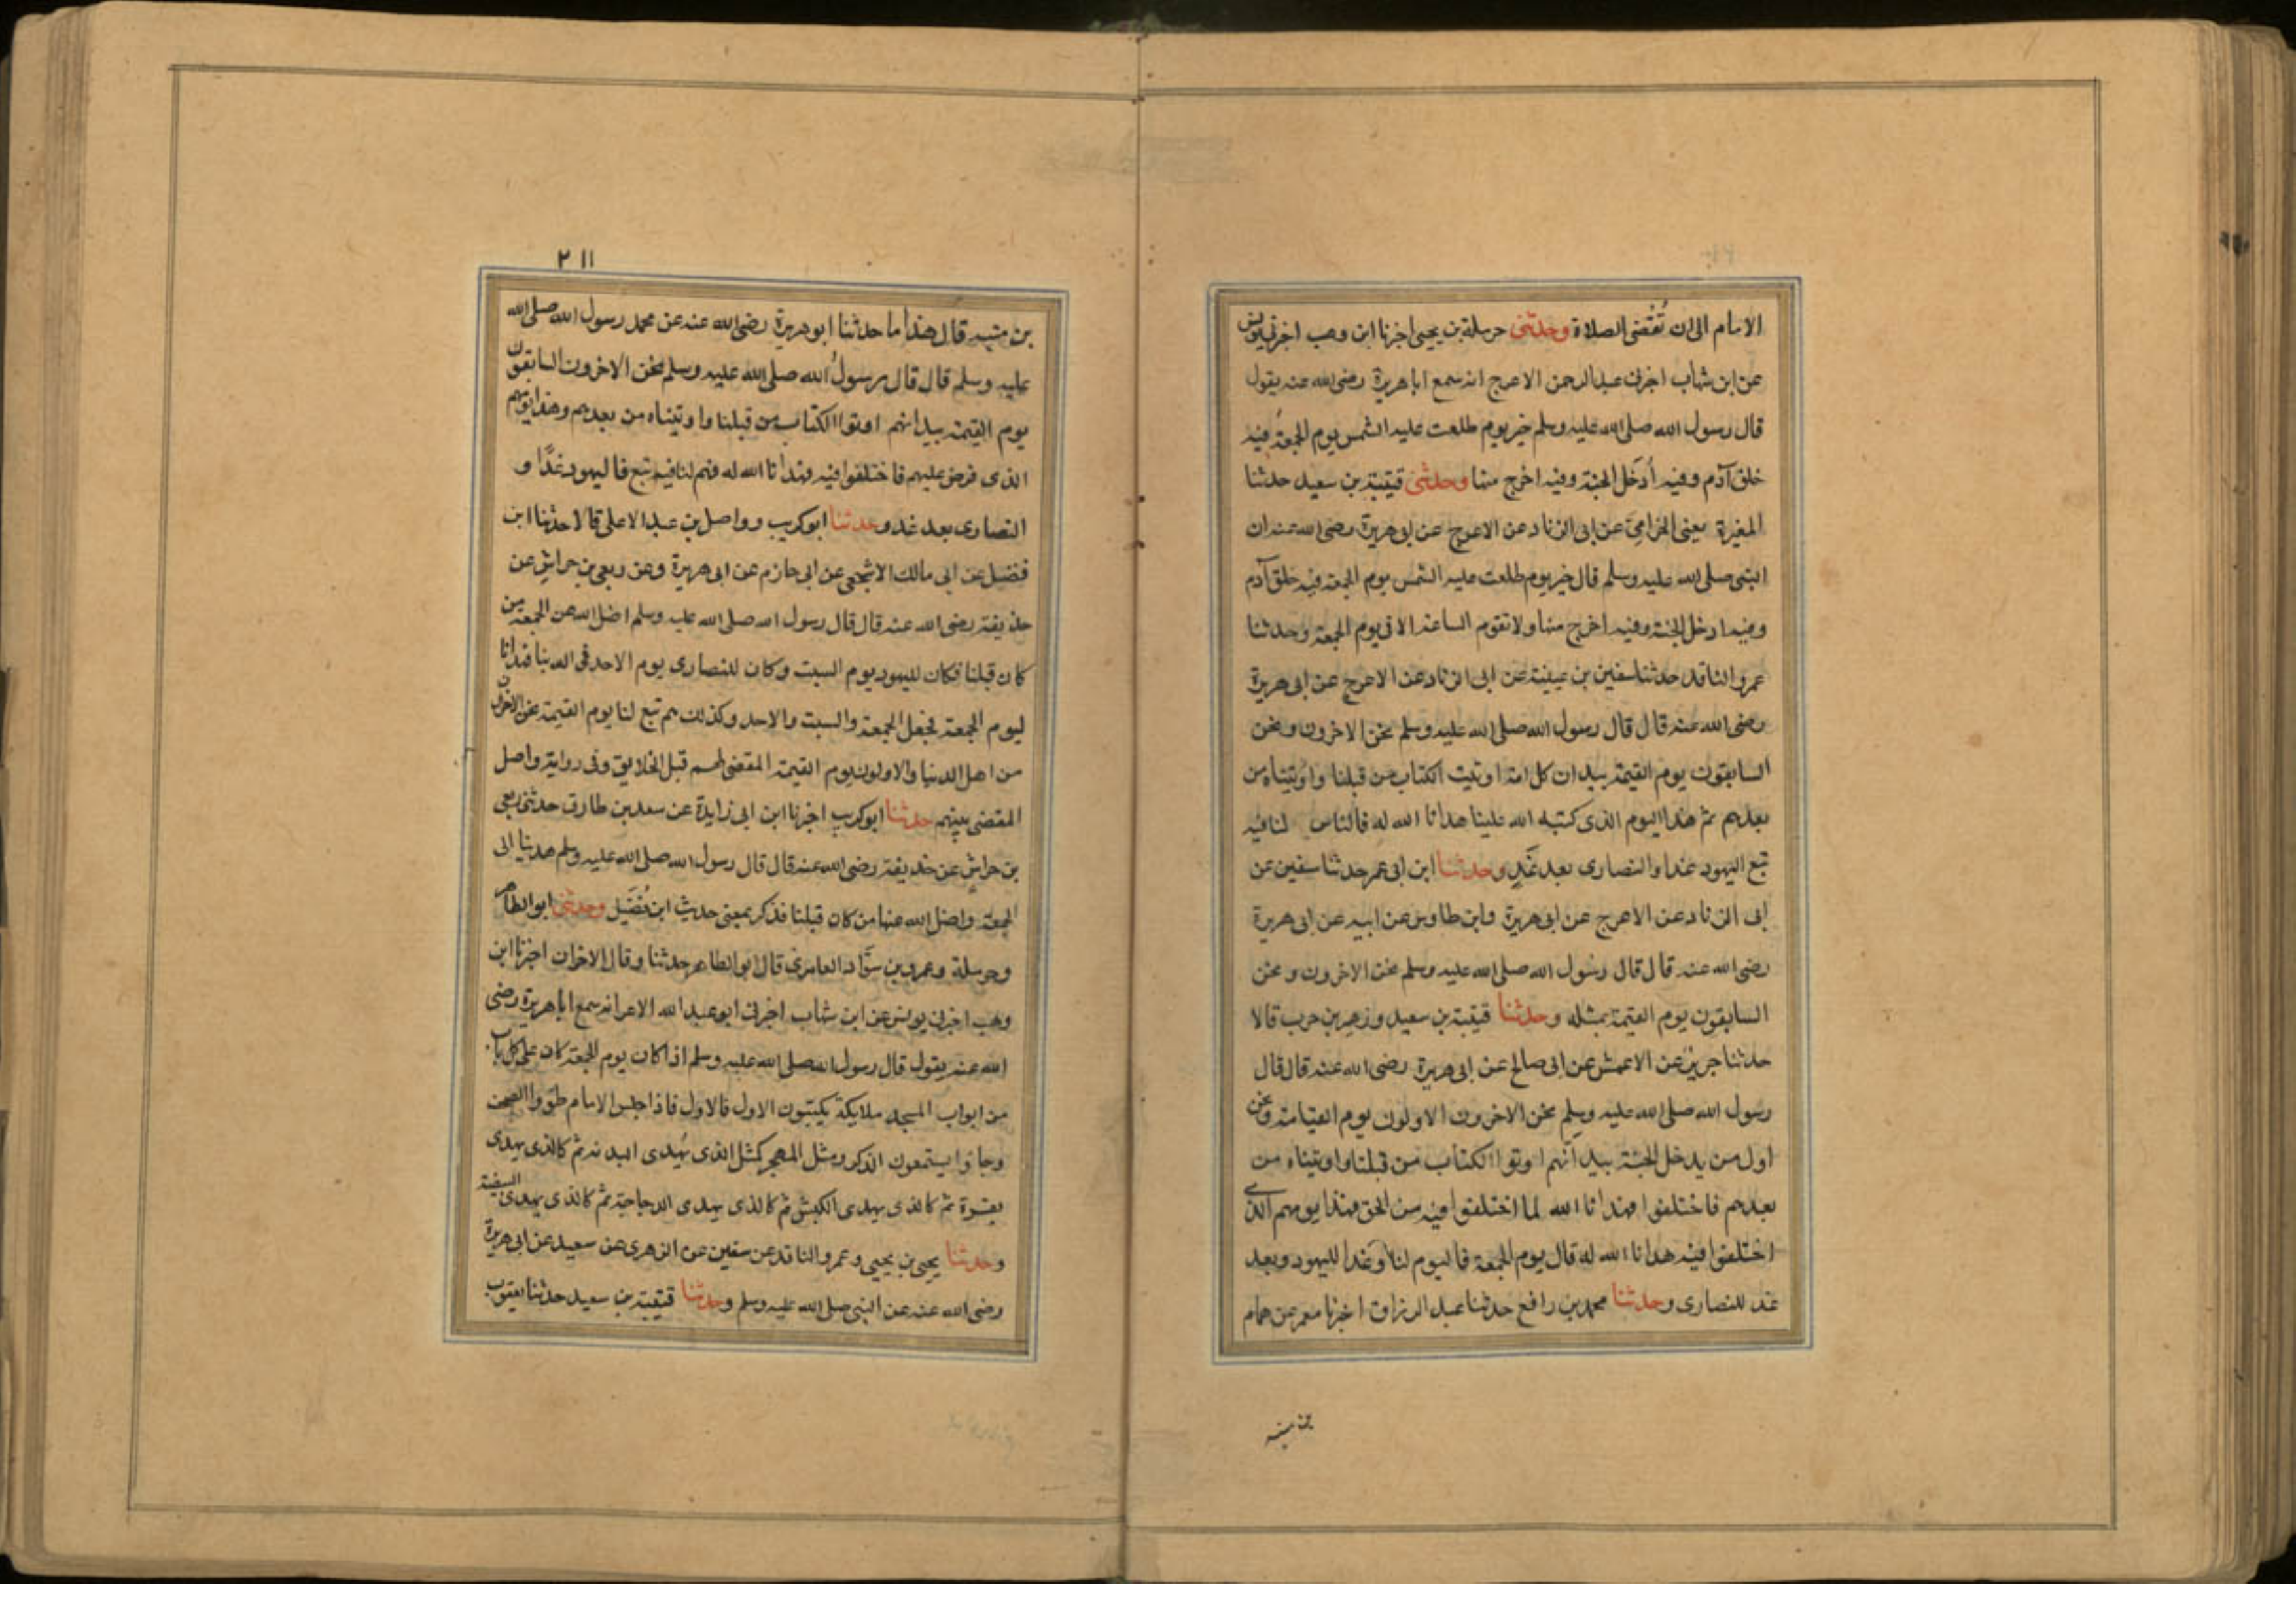 الامام الى ان تُقضى الصلاة وحدثنى حرملة بن يحيى اخبرنا ابن وهب اخبرنى يونس
عن ابن شهاب اخبرنى عبد الرحمن الاعرج انه سمع ابا هريرة رضى الله عنه يقول
قال رسول الله صلى الله عليه وسلم خير يوم طلعت عليه الشمس يوم الجمعة فيه
خلق آدم وفيه أُدخل الجنة وفيه اخرج منها وحدثنى قتيبة بن سعيد حدثنا
المغيرة يعنى الحزامى عن ابى الزناد عن الاعرج عن ابى هريرة رضى الله عنه ان
النبى صلى الله عليه وسلم قال خير يوم طلعت عليه الشمس يوم الجمعة فيه خلق آدم
وفيه ادخل الجنة وفيه اخرج منها ولا تقوم الساعة الا فى يوم الجمعة وحدثنا
عمرو الناقد حدثنا سفين بن عيينة عن ابى الزناد عن الاعرج عن ابى هريرة
رضى الله عنه قال قال رسول الله صلى الله عليه وسلم نحن الاخرون ونحن
السابقون يوم القيمة بيد ان كل امة اوتيت الكتاب من قبلنا واوتيناه من
بعدهم ثم هذا اليوم الذى كتبه الله علينا هدانا الله له فالناس لنا فيه
تبع اليهود غدا والنصارى بعد غَدٍ وحدثنا ابن ابى عمر حدثنا سفين عن
ابى الزناد عن الاعرج عن ابى هريرة وابن طاوس عن ابيه عن ابى هريرة
رضى الله عنه قال قال رسول الله صلى الله عليه وسلم نحن الاخرون ونحن
السابقون يوم القيمة بمثله وحدثنا قتيبة بن سعيد وزهير بن حرب قالا
حدثنا جرير عن الاعمش عن ابى صالح عن ابى هريرة رضى الله عنه قال قال
رسول الله صلى الله عليه وسلم نحن الاخرون الاولون يوم القيامة ونحن
اول من يدخل الجنة بيد انهم اوتوا الكتاب من قبلنا واوتيناه من
بعدهم فاختلفوا فهدانا الله لما اختلفوا فيه من الحق فهذا يومهم الذى
اختلفوا فيه هدانا الله له قال يوم الجمعة فاليوم لنا وغدا لليهود وبعد
غد للنصارى وحدثنا محمد بن رافع حدثنا عبد الرزاق اخبرنا معمر عن همام
بن منبه
٢١١
بن منبه قال هذا ما حدثنا ابو هريرة رضى الله عنه عن محمد رسول الله صلى الله
عليه وسلم قال قال رسولُ الله صلى الله عليه وسلم نحن الاخرون السابقون
يوم القيمة بيد انهم اوتوا الكتاب من قبلنا واوتيناه من بعدهم وهذا يومهم
الذى فرض عليهم فاختلفوا فيه فهدانا الله له فهم لنا فيه تبع فاليهود غدًا و
النصارى بعد غد وحدثنا ابو كريب وواصل بن عبد الاعلى قالا حدثنا ابن
فضيل عن ابى مالك الاشجعى عن ابى حازم عن ابى هريرة وعن ربعى بن حراش عن
حذيفة رضى الله عنه قال قال رسول الله صلى الله عليه وسلم اضل الله عن الجمعة من
كان قبلنا فكان لليهود يوم السبت وكان للنصارى يوم الاحد فى الله بنا فهدانا
ليوم الجمعة فجعل الجمعة والسبت والاحد وكذلك هم تبع لنا يوم القيمة نحن الاخرون
من اهل الدنيا والاولون يوم القيمة المقضى لهم قبل الخلايق وفى رواية واصل
المقضى بينهم حدثنا ابو كريب اخبرنا ابن ابى زايدة عن سعد بن طارق حدثنى ربعى
بن حراش عن حذيفة رضى الله عنه قال قال رسول الله صلى الله عليه وسلم هدينا الى
الجمعة واضل الله عنها من كان قبلنا فذكر بمعنى حديث ابن فُضَيل وحدثنى ابو الطاهر
وحرملة وعمرو بن سوَّاد العامرى قال ابو الطاهر حدثنا وقال الاخران اخبرنا ابن
وهب اخبرنى يونس عن ابن شهاب اخبرنى ابو عبد الله الاغر انه سمع ابا هريرة رضى
الله عنه يقول قال رسول الله صلى الله عليه وسلم اذا كان يوم الجمعة كان على كل باب
من ابواب المسجد ملايكة يكتبون الاول فالاول فاذا جلس الامام طووا الصحف
وجاؤا يستمعون الذكر ومثل المهجر كمثل الذى يُهدى البدنة ثم كالذى يهدى
بقرة ثم كالذى يهدى الكبش ثم كالذى يهدى الدجاجة ثم كالذى يهدى البيضة
وحدثنا يحيى بن يحيى وعمرو الناقد عن سفين عن الزهرى عن سعيد عن ابى هريرة
رضى الله عنه عن النبى صلى الله عليه وسلم وحدثنا قتيبة بن سعيد حدثنا يعقوب